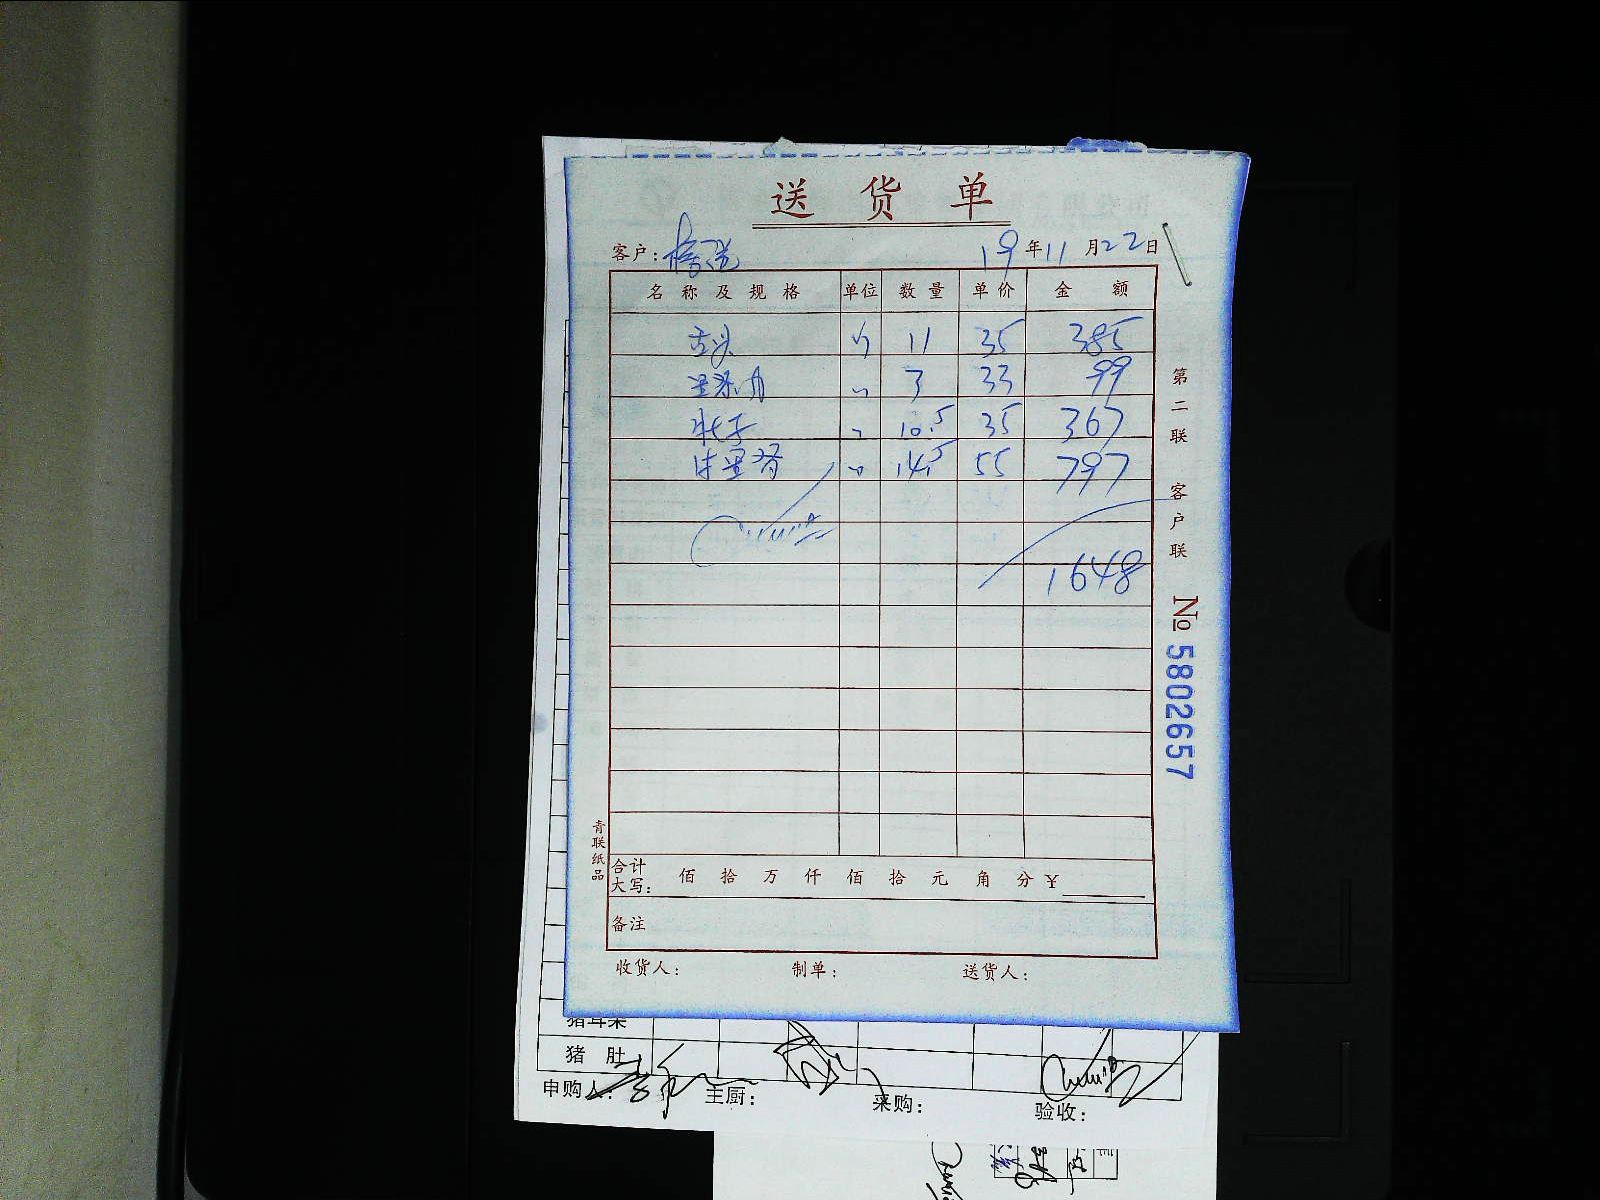 送 货 单
客户: 19年11月22日
名 称 及 规 格 单位 数 量 单 价 金 额
舌头 斤 11 35 385
里脊肉 〃 3 33 99
肚子 〃 10.5 35 367
牛里脊 〃 14.5 55 797
1648
第二联 客户联
№ 5802657
青联纸品
合计大写: 佰 拾 万 仟 佰 拾 元 角 分 ¥
备注
收货人: 制单: 送货人:
猪耳朵
猪 肚
申购人: 主厨: 采购: 验收: